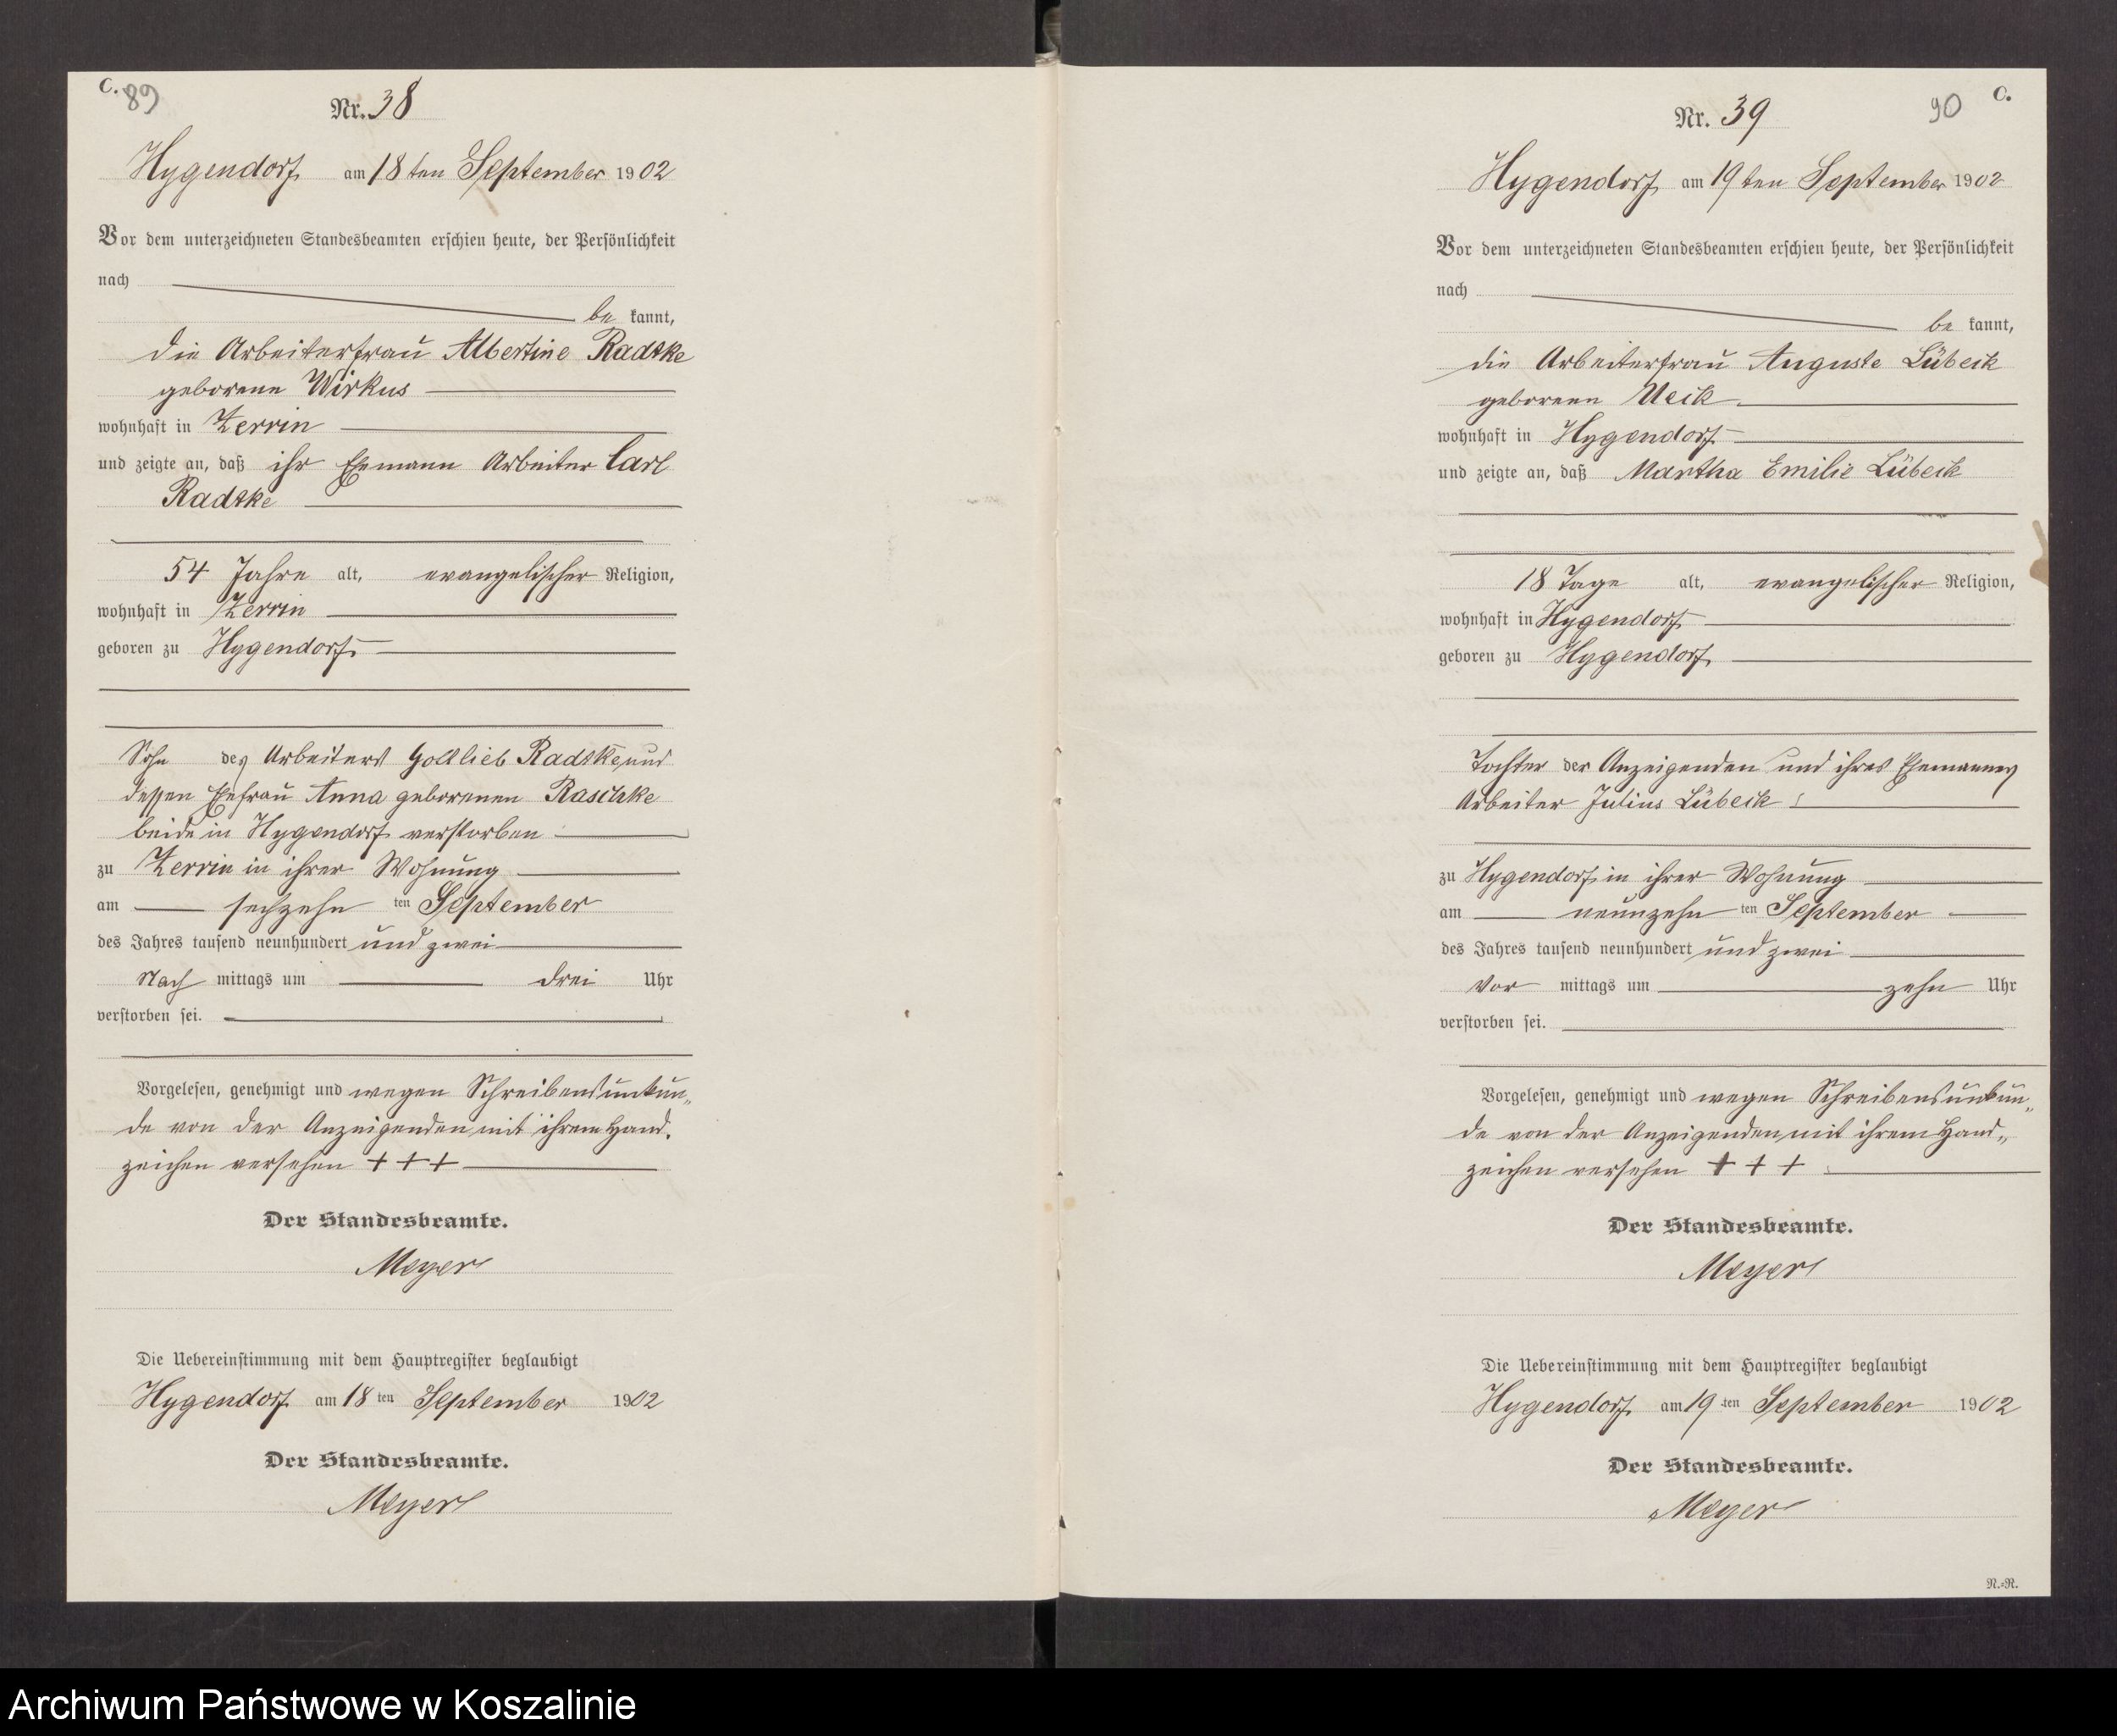 C.
89
Nr. 38
Hygendorf am 18ten September 1902
Vor dem unterzeichneten Standesbeamten erschien heute, der Persönlichkeit
nach
be kannt,
die Arbeiterfrau Albertine Radtke
geborene Wirkus
wohnhaft in Zerrin
und zeigte an, daß ihr Ehemann Arbeiter Carl
Radtke
54 Jahre alt, evangelischer Religion,
wohnhaft in Zerrin
geboren zu Hygendorf
Sohn des Arbeiters Gottlieb Radtke und
dessen Ehefrau Anna geborenen Raschke
beide in Hygendorf verstorben
zu Zerrin in ihrer Wohnung
am sechzehn ten September
des Jahres tausend neunhundert und zwei
Nach mittags um drei Uhr
verstorben sei.
Vorgelesen, genehmigt und wegen Schreibensunkun„
de von der Anzeigenden mit ihrem Hand„
zeichen versehen +++
Der Standesbeamte.
Meyer
Die Uebereinstimmung mit dem Hauptregister beglaubigt
Hygendorf am 18 ten September 1902
Der Standesbeamte.
Meyer
90
C.
Nr. 39
Hygendorf am 19ten September 1902
Vor dem unterzeichneten Standesbeamten erschien heute, der Persönlichkeit
nach
be kannt,
die Arbeiterfrau Auguste Lübeck
geborenen
wohnhaft in Hygendorf
und zeigte an, daß Martha Emilie Lübeck
18 Tage alt, evangelischer Religion,
wohnhaft in Hygendorf
geboren zu Hygendorf
Tochter der Anzeigenden und ihres Ehemannes
Arbeiter Julius Lübeck
zu Hygendorf in ihrer Wohnung
am neunzehn ten September
des Jahres tausend neunhundert und zwei
Vor mittags um zehn Uhr
verstorben sei.
Vorgelesen, genehmigt und wegen Schreibensunkun„
de von der Anzeigenden mit ihrem Hand„
zeichen versehen +++
Der Standesbeamte.
Meyer
Die Uebereinstimmung mit dem Hauptregister beglaubigt
Hygendorf am 19 ten September 1902
Der Standesbeamte.
Meyer
N.=N.
Archiwum Państwowe w Koszalinie